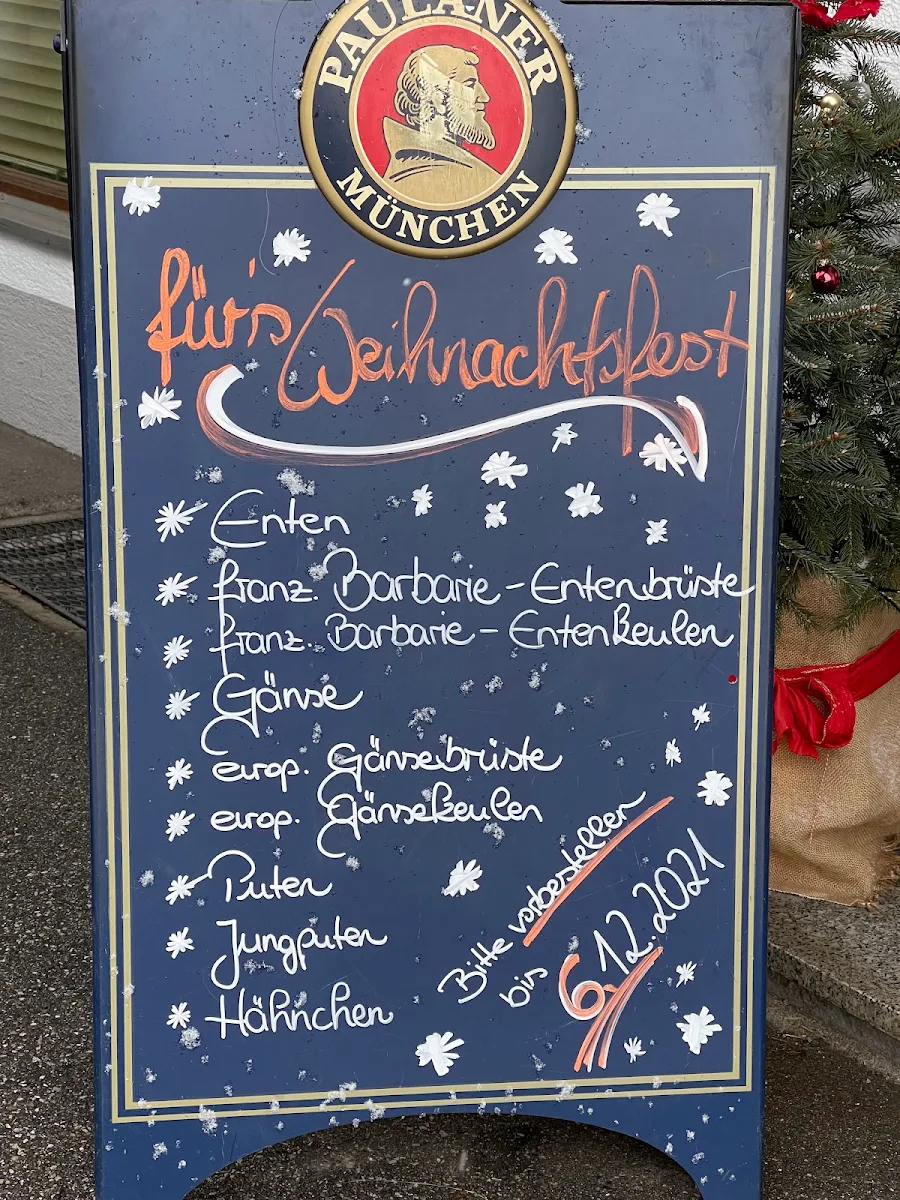 PAULANER
MÜNCHEN
für's Weihnachtsfest
Enten
franz. Barbarie - Entenbrüste
franz. Barbarie - Entenkeulen
Gänse
europ. Gänsebrüste
europ. Gänsekeulen
Puten
Jungputen
Hähnchen
Bitte vorbestellen
bis 6.12.2021